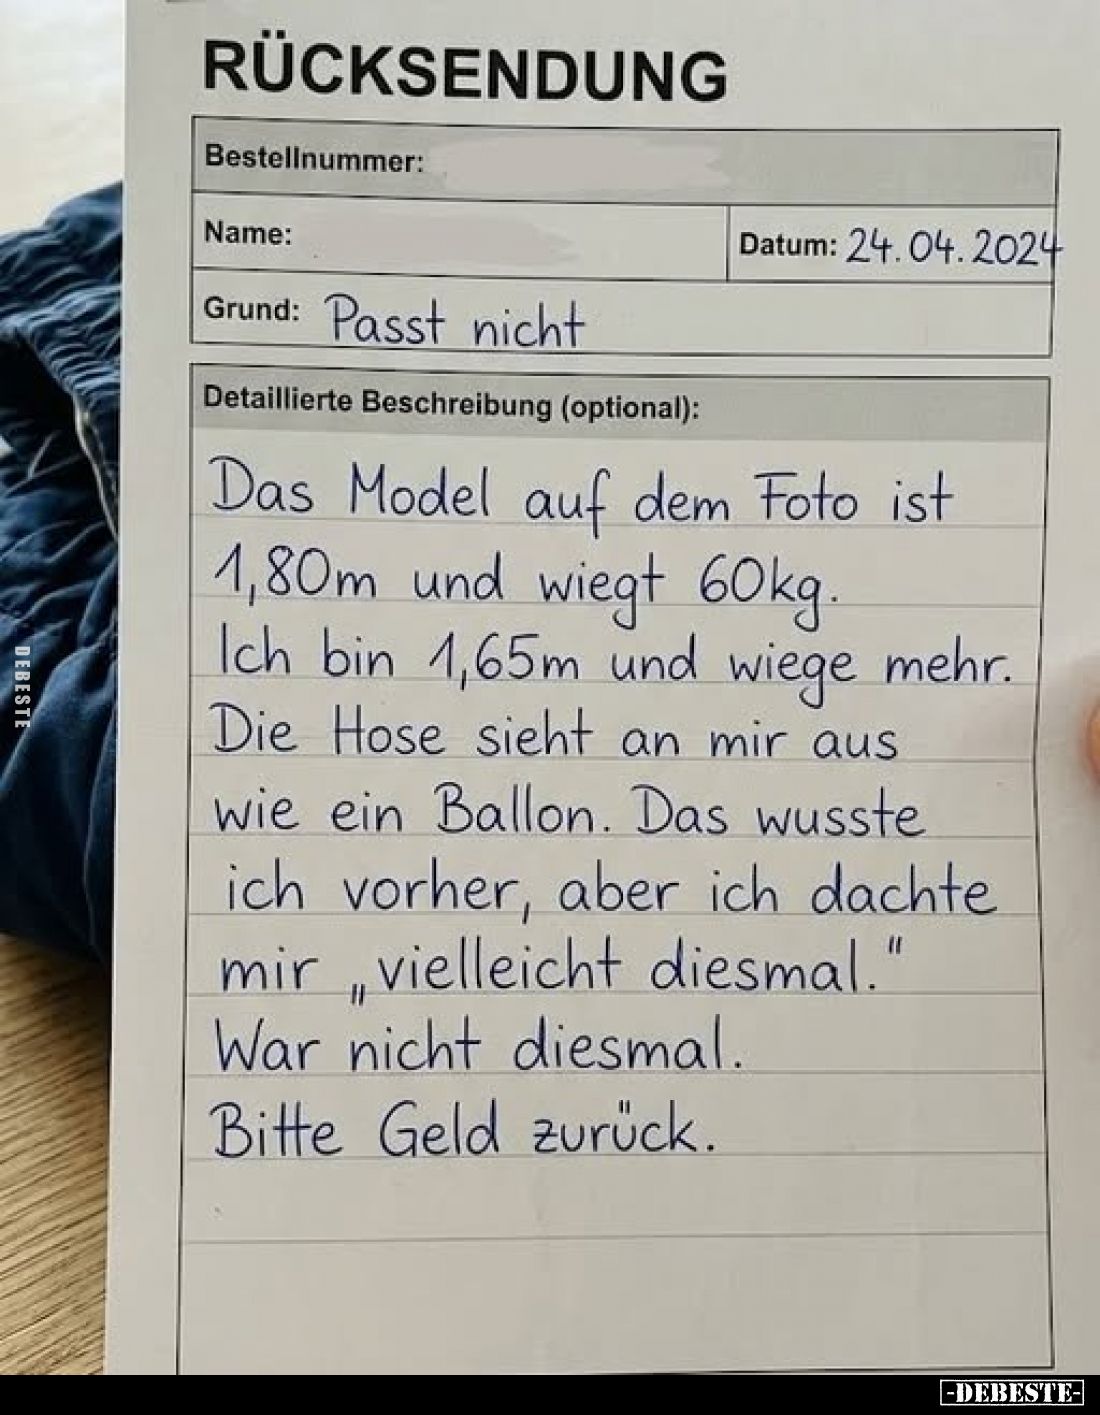 RÜCKSENDUNG
Bestellnummer:
Name:
Datum: 24.04.2024
Grund: Passt nicht
Detaillierte Beschreibung (optional):
Das Model auf dem Foto ist
1,80m und wiegt 60kg.
Ich bin 1,65m und wiege mehr.
Die Hose sieht an mir aus
wie ein Ballon. Das wusste
ich vorher, aber ich dachte
mir „vielleicht diesmal."
War nicht diesmal.
Bitte Geld zurück.
DEBESTE
-DEBESTE-